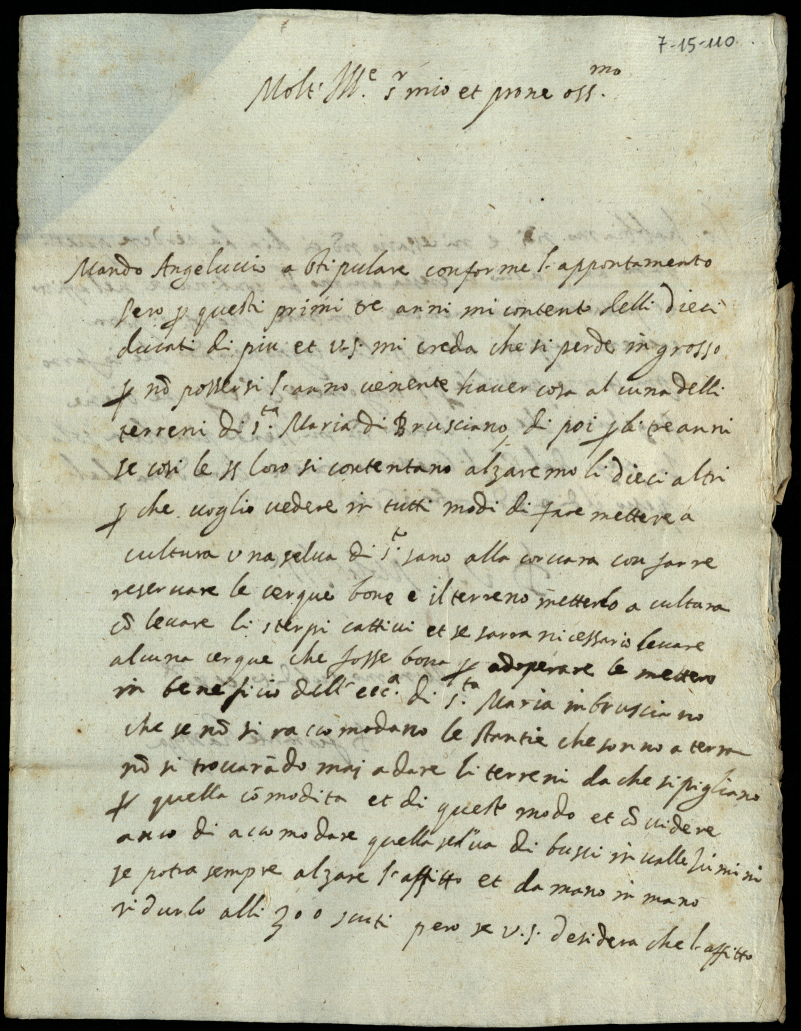 7-15-110
Molt Ill.e s.r mio et prone oss.mo
Mando Angeluccio a stipulare conforme l'appontamento
pero p questi primi tre anni mi contento delli dieci
ducati di piu et v.s. mi creda che si perde in grosso
p nõ possersi l'anno venente haver cosa alcuna delli
terreni di s.ta Maria di Brusciano, di poi p li tre anni
se cosi le ss loro si contentano alzaremo li dieci altri
p che voglio vedere in tutti modi di fare mettere a
cultura una selva di s.t sano alla corvara con farre
reservare le cerque bone e il terreno metterlo a cultura
cõ levare li sterpi cattivi et se sarra nicessario levare
alcuna cerque che fosse bona p adoperare le mettero
in beneficio dell' ecc.a di s.ta Maria in brusciano
che se nõ si raccõmodano le stantie che sonno a terra
nõ si trovarãdo mai a dare li terreni da che si pigliano
p quella cõmodita et di questo modo et cõ videre
anco di accomodare quella selva di busci in valle
se potra sempre alzare l'affitto et da mano in mano
ridurlo alli 300 scuti pero se v.s. desidera che l'affitto